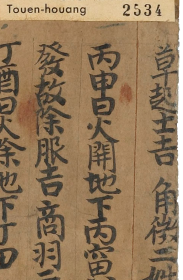 Touen-houang 2534
草起土吉 角徵二姓
丙申日火開地下丙
發故除服吉 商羽二
丁酉日火除地下丁